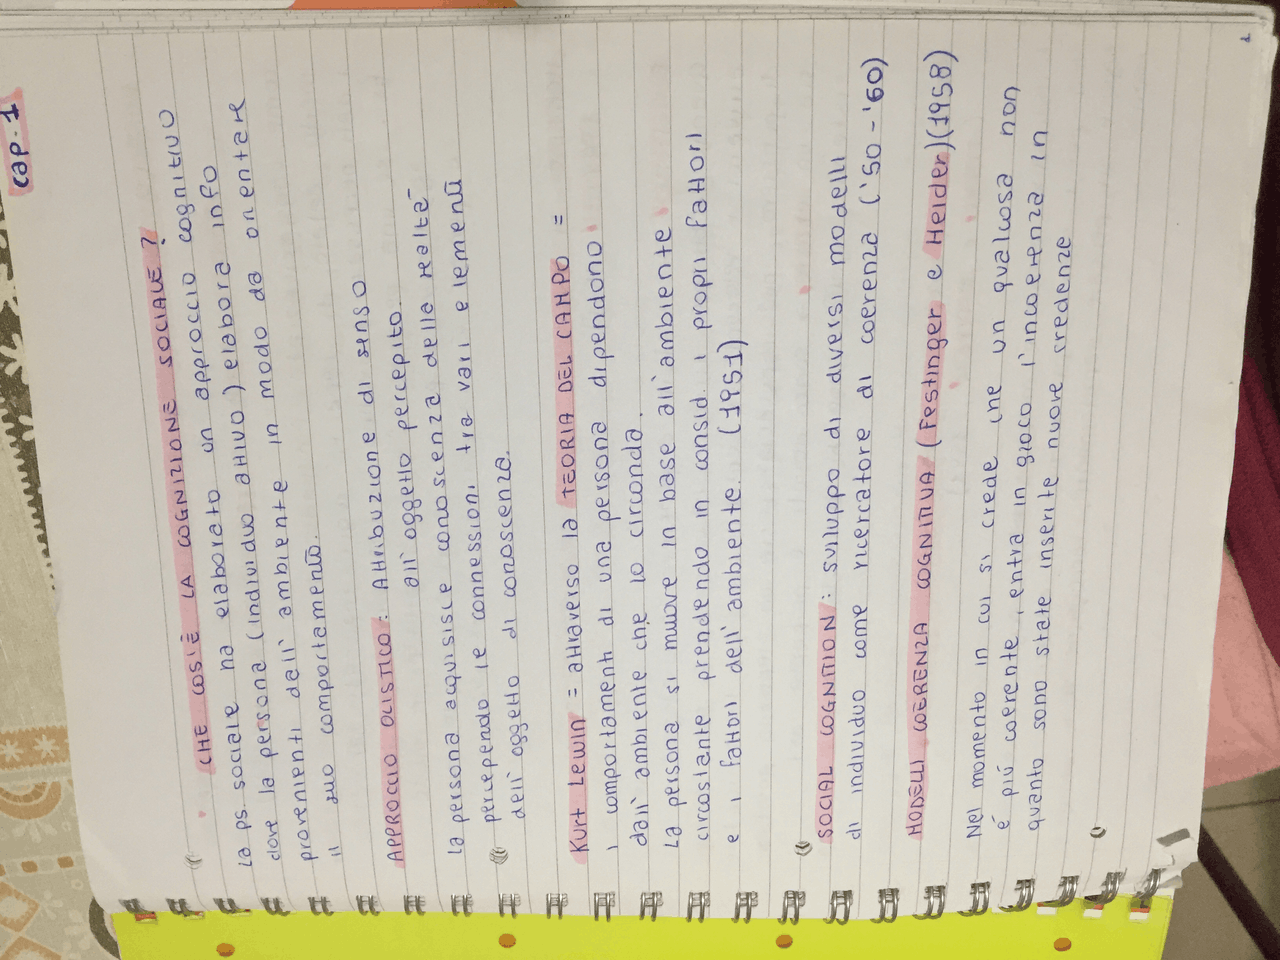 cap. 1
CHE COS'È LA COGNIZIONE SOCIALE?
La ps. sociale ha elaborato un approccio cognitivo
dove la persona (individuo attivo) elabora info
provenienti dell'ambiente in modo da orientare
il suo comportamento.
APPROCCIO OLISTICO: Attribuzione di senso
all'oggetto percepito.
La persona acquisisce conoscenza della realtà
percependo le connessioni tra vari elementi
dell'oggetto di conoscenza.
Kurt Lewin = attraverso la TEORIA DEL CAMPO =
i comportamenti di una persona dipendono
dall'ambiente che lo circonda.
La persona si muove in base all'ambiente
circostante prendendo in consid. i propri fattori
e i fattori dell'ambiente. (1951)
SOCIAL COGNITION: sviluppo di diversi modelli
di individuo come ricercatore di coerenza ('50-'60)
MODELLI COERENZA COGNITIVA (Festinger e Heider)(1958)
Nel momento in cui si crede che un qualcosa non
è più coerente, entra in gioco l'incoerenza in
quanto sono state inserite nuove credenze
1